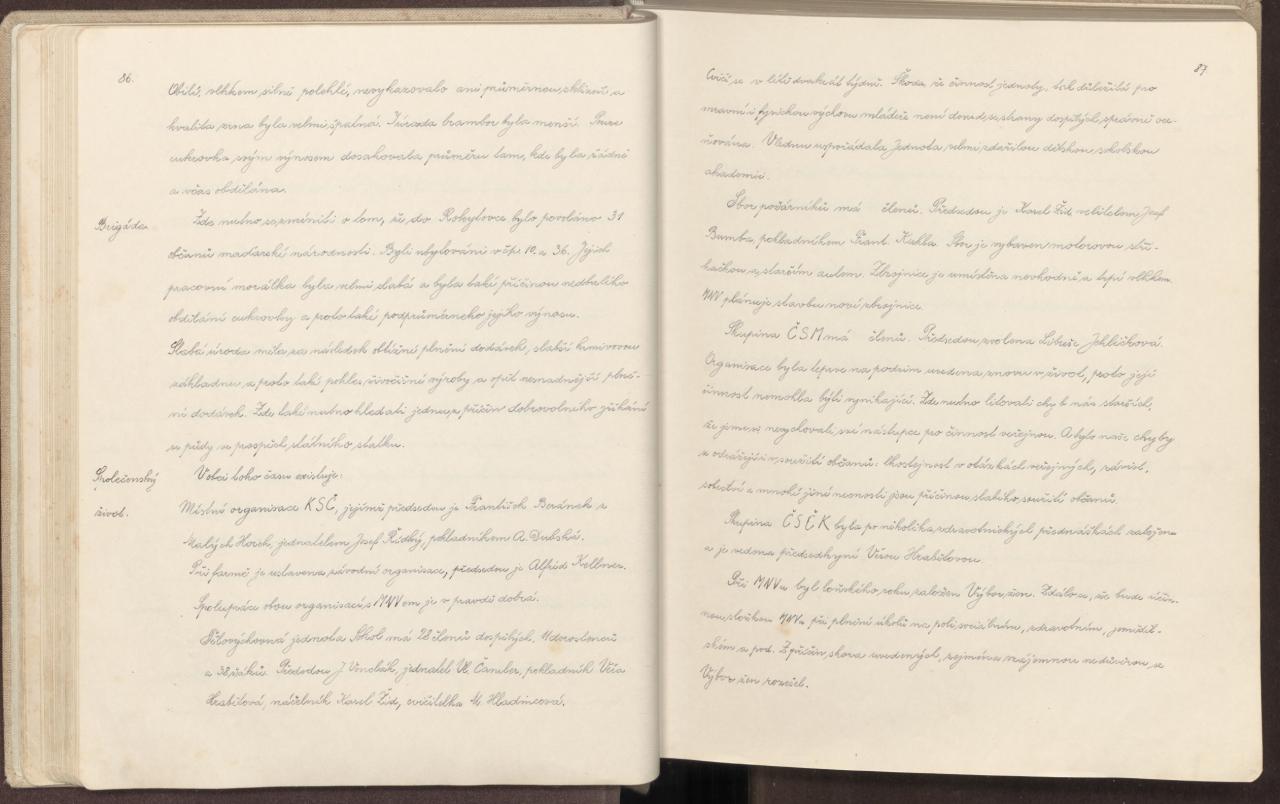 86.
Obilí, vlhkem silně polehlé, nevykazovalo ani průměrnou sklizeň a
kvalita zrna byla velmi špatná. I úroda brambor byla menší. Pouze
cukrovka svým výnosem dosahovala průměru tam, kde byla řádně
a včas obdělána.
Brigáda
Zde nutno se zmíniti o tom, že do Robytovce bylo povoláno 31
občanů maďarské národnosti. Byli ubytováni v čp. 10. a 36. Jejich
pracovní morálka byla velmi slabá a byla také příčinou nedbalého
obdělání cukrovky a proto také podprůměrného jejího výnosu.
Slabá úroda měla za následek obtížné plnění dodávek, slabší krmivovou
základnu a proto také pokles živočišné výroby a opět nesnadnější plně-
ní dodávek. Zde také nutno hledati jednu z příčin dobrovolného zříkání
se půdy ve prospěch státního statku.
Společenský
život.
V obci toho času existuje:
Místní organisace KSČ, jejímž předsedou je František Beránek z
Malých Horek, jednatelem Josef Řídký, pokladníkem A. Dubská.
Při farmě je ustavena závodní organisace, předsedou je Alfréd Kellner.
Spolupráce obou organisací s MNVem je v pravdě dobrá.
Tělovýchovná jednota Sokol má 28 členů dospělých, 11 dorostenců
a 38 žáků. Předsedou J. Vinclák, jednatel Vl. Čamler, pokladník Věra
Hrabětová, náčelník Karel Žid, cvičitelka M. Hladincová.
87
Cvičí se v létě dvakrát týdně. Škoda, že činnost jednoty, tak důležitá pro
mravní i fysickou výchovu mládeže není dosud se strany dospělých správně oce-
ňována. V lednu uspořádala Jednota velmi zdařilou dětskou sokolskou
akademii.
Sbor požárníků má členů. Předsedou je Karel Žid, velitelem Josef
Bamba, pokladníkem Frant. Kahla. Sbor je vybaven motorovou stří-
kačkou a starším autem. Zbrojnice je umístěna nevhodně a trpí vlhkem.
MNV plánuje stavbu nové zbrojnice.
Skupina ČSM má členů. Předsedou zvolena Libuše Jehličková.
Organisace byla teprve na podzim uvedena znovu v život, proto její
činnost nemohla býti vynikající. Zde nutno litovati chyb nás starších,
že jsme si nevychovali své nástupce pro činnost veřejnou. A bylo naše chyby
se odrážejí v soužití občanů: lhostejnost v otázkách veřejných, závist,
sobectví a mnohé jiné nectnosti jsou příčinou slabého soužití občanů.
Skupina ČSČK byla po několika zdravotnických přednáškách založena
a je vedena předsedkyní Věrou Hrabětovou.
Při MNVu byl loňského roku založen Výbor žen. Zdálo se, že bude účin-
nou složkou MNVu při plnění úkolů na poli sociálním, zdravotním, zeměděl-
ském a pod. Z příčin shora uvedených, zejména vzájemnou nedůvěrou, se
Výbor žen rozešel.